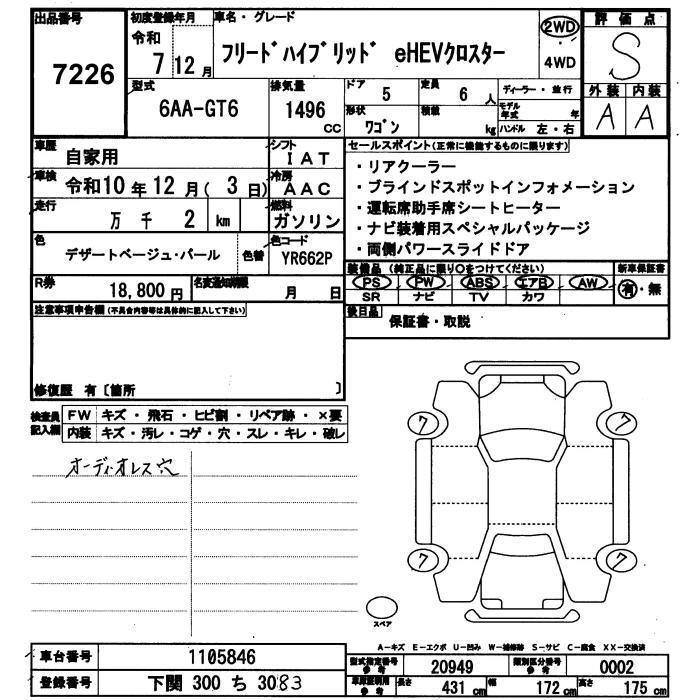 出品番号
7226
初度登録年月
令和
7 12 月
車名・グレード
フリードハイブリッド eHEVクロスター
2WD
4WD
評価点
S
外装 内装
A A
型式
6AA-GT6
排気量
1496
CC
ドア
5
定員
6 人
ディーラー・並行
モデル年式 年
形状
ワゴン
積載
kg
ハンドル 左・右
車歴
自家用
シフト
IAT
車検
令和10 年 12 月( 3 日)
冷房
AAC
走行
万 千 2 km
燃料
ガソリン
色
デザートベージュ・パール
色替
色コード
YR662P
R券
18,800 円
名変通知期限
月 日
セールスポイント(正常に機能するものに限ります)
・リアクーラー
・ブラインドスポットインフォメーション
・運転席助手席シートヒーター
・ナビ装着用スペシャルパッケージ
・両側パワースライドドア
装備品 (純正品に限り○をつけてください)
新車保証書
PS PW ABS エアB AW
有・無
SR ナビ TV カワ
後日品
保証書・取説
注意事項申告欄(不具合内容等は具体的に記入して下さい)
修復歴 有〔箇所 〕
検査員記入欄
FW キズ・飛石・ヒビ割・リペア跡・×要
内装 キズ・汚レ・コゲ・穴・スレ・キレ・破レ
オーディオレス穴
7 7
7 7
スペア
A-キズ E-エクボ U-凹み W-補修跡 S-サビ C-腐食 XX-交換済
車台番号
1105846
登録番号
下関 300 ち 3083
型式指定番号
参考
20949
類別区分番号
参考
0002
車庫証明用
参考
長さ 431 cm
幅 172 cm
高さ 175 cm